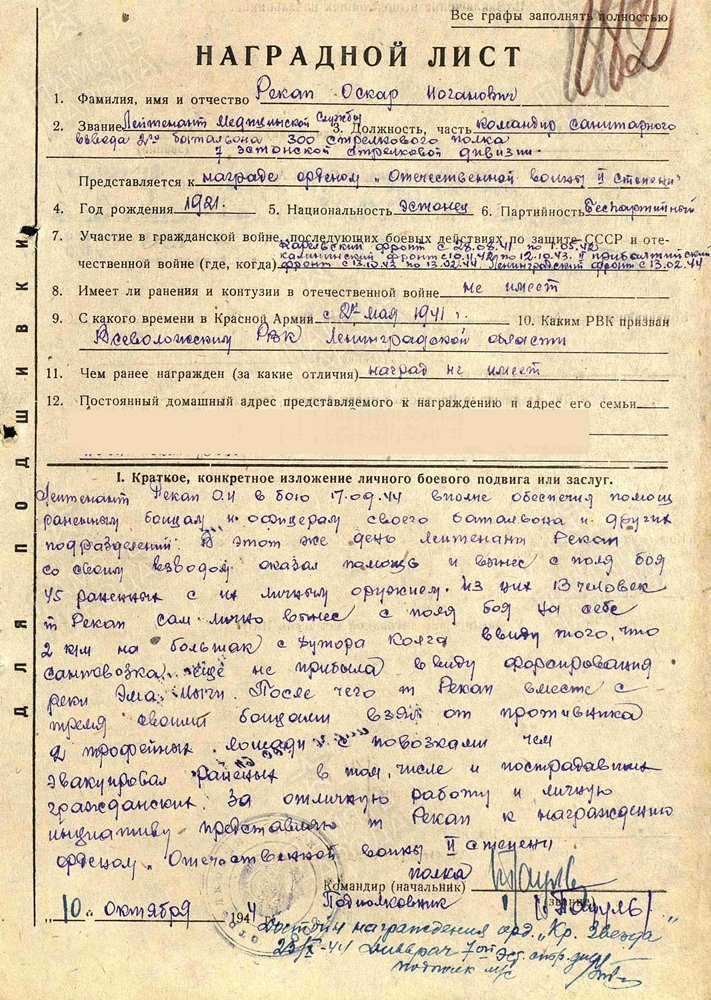 Все графы заполнять полностью
НАГРАДНОЙ ЛИСТ
1. Фамилия, имя и отчество Рекап Оскар Иоганович
2. Звание Лейтенант Медицинской Службы 3. Должность, часть командир санитарного
взвода 2го батальона 300 стрелкового полка
7 эстонской стрелковой дивизии.
Представляется к награде орденом „Отечественной войны II степени"
4. Год рождения 1921. 5. Национальность Эстонец 6. Партийность Беспартийный
7. Участие в гражданской войне, последующих боевых действиях по защите СССР и оте-
Карельский фронт с 08.08.41 по 1.05.42
Калининский фронт с 10.11.42 по 12.10.43. II прибалтийский
чественной войне (где, когда) фронт с 13.10.43 по 13.02.44. Ленинградский фронт с 13.02.44
8. Имеет ли ранения и контузии в отечественной войне не имеет
9. С какого времени в Красной Армии с 2го мая 1941 г. 10. Каким РВК призван
Всеволожским РВК Ленинградской области
11. Чем ранее награжден (за какие отличия) наград не имеет
12. Постоянный домашный адрес представляемого к награждению и адрес его семьи
ДЛЯ ПОДШИВКИ
I. Краткое, конкретное изложение личного боевого подвига или заслуг.
Лейтенант Рекап О.И в бою 17.09.44 вполне обеспечил помощ
раненным бойцам и офицерам своего батальона и других
подразделений. В этот же день лейтенант Рекап
со своим взводом оказал помощь и вынес с поля боя
45 раненных с их личным оружием. Из них 13 человек
т Рекап сам лично вынес с поля боя на себе
2 км на большак с Хутора Колга ввиду того, что
санповозка еще не прибыла ввиду форсирования
реки Эма-Йыги. После чего т Рекап вместе с
тремя своими бойцами взял от противника
2 трофейных лошади с повозками чем
эвакуировал раненых в том, числе и пострадавших
гражданских. За отличную работу и личную
инициативу представляю т Рекап к награждению
орденом „Отечественной войны II степени
полка
Командир (начальник)
Подполковник (звание) /Пауль/
„10" октября 1944
Достоин награждения орд. „Кр. Звезда"
Дивврач 7ой Эст. стр. див
подполк м/с